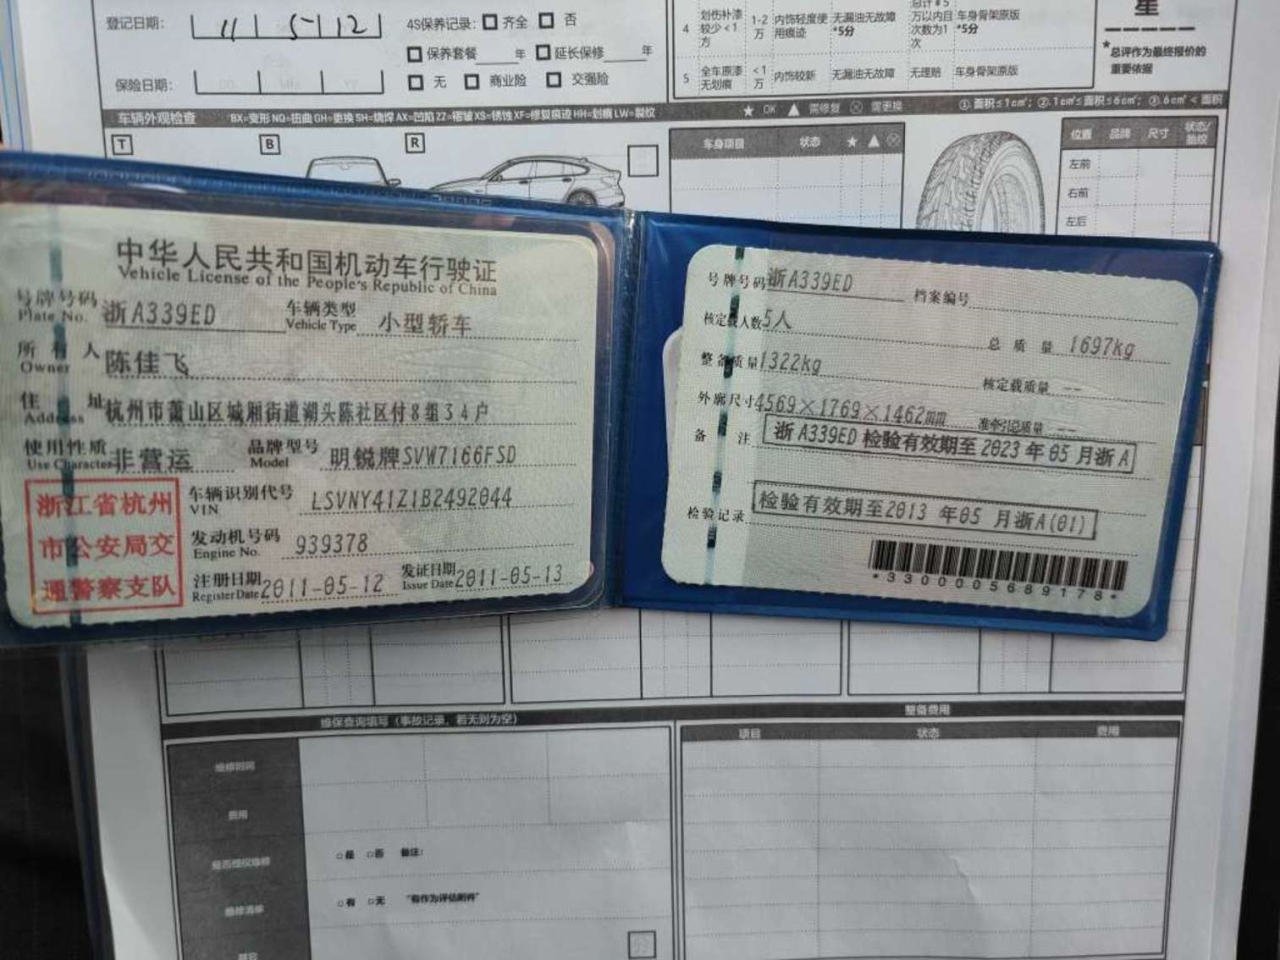 登记日期: 11 5 12
4S保养记录: □ 齐全 □ 否
□ 保养套餐 年 □ 延长保修 年
保险日期:
□ 无 □ 商业险 □ 交强险
4 划伤补漆较少<1方 1-2万 内饰轻度使用痕迹 无漏油无故障 *5分 万以内且次数为1次 车身骨架原版 *5分
5 全车原漆无划痕 <1万 内饰较新 无漏油无故障 无理赔 车身骨架原版
星
*总评作为最终报价的重要依据
车辆外观检查 BX=变形 NQ=扭曲 GH=更换 SH=烧焊 AX=凹陷 ZZ=褶皱 XS=锈蚀 XF=修复痕迹 HH=划痕 LW=裂纹
★ OK ▲ 需修复 ⊗ 需更换
①. 面积≤1c㎡; ②. 1c㎡≤面积≤6c㎡; ③. 6c㎡<面积
T B R
车身项目 状态 ★ ▲ ⊗
位置 品牌 尺寸 状态/胎纹
左前
右前
左后
中华人民共和国机动车行驶证
Vehicle License of the People's Republic of China
号牌号码 浙A339ED 车辆类型 小型轿车
Plate No. Vehicle Type
所有人 陈佳飞
Owner
住址 杭州市萧山区城厢街道湖头陈社区付8组34户
Address
使用性质 非营运 品牌型号 明锐牌SVW7166FSD
Use Character Model
浙江省杭州
市公安局交
通警察支队
车辆识别代号 LSVNY41Z1B2492044
VIN
发动机号码 939378
Engine No.
注册日期 2011-05-12 发证日期 2011-05-13
Register Date Issue Date
号牌号码 浙A339ED 档案编号
核定载人数 5人 总质量 1697kg
整备质量 1322kg 核定载质量 --
外廓尺寸 4569×1769×1462mm 准牵引总质量 --
备注 浙A339ED 检验有效期至2023年05月浙A
检验记录 检验有效期至2013年05月浙A(01)
*3300005689178*
维保查询填写(事故记录，若无则为空)
整备费用
维修时间
费用
是否授权维修
□是 □否 备注:
维修清单
□有 □无 "有作为评估附件"
其它
项目 状态 费用